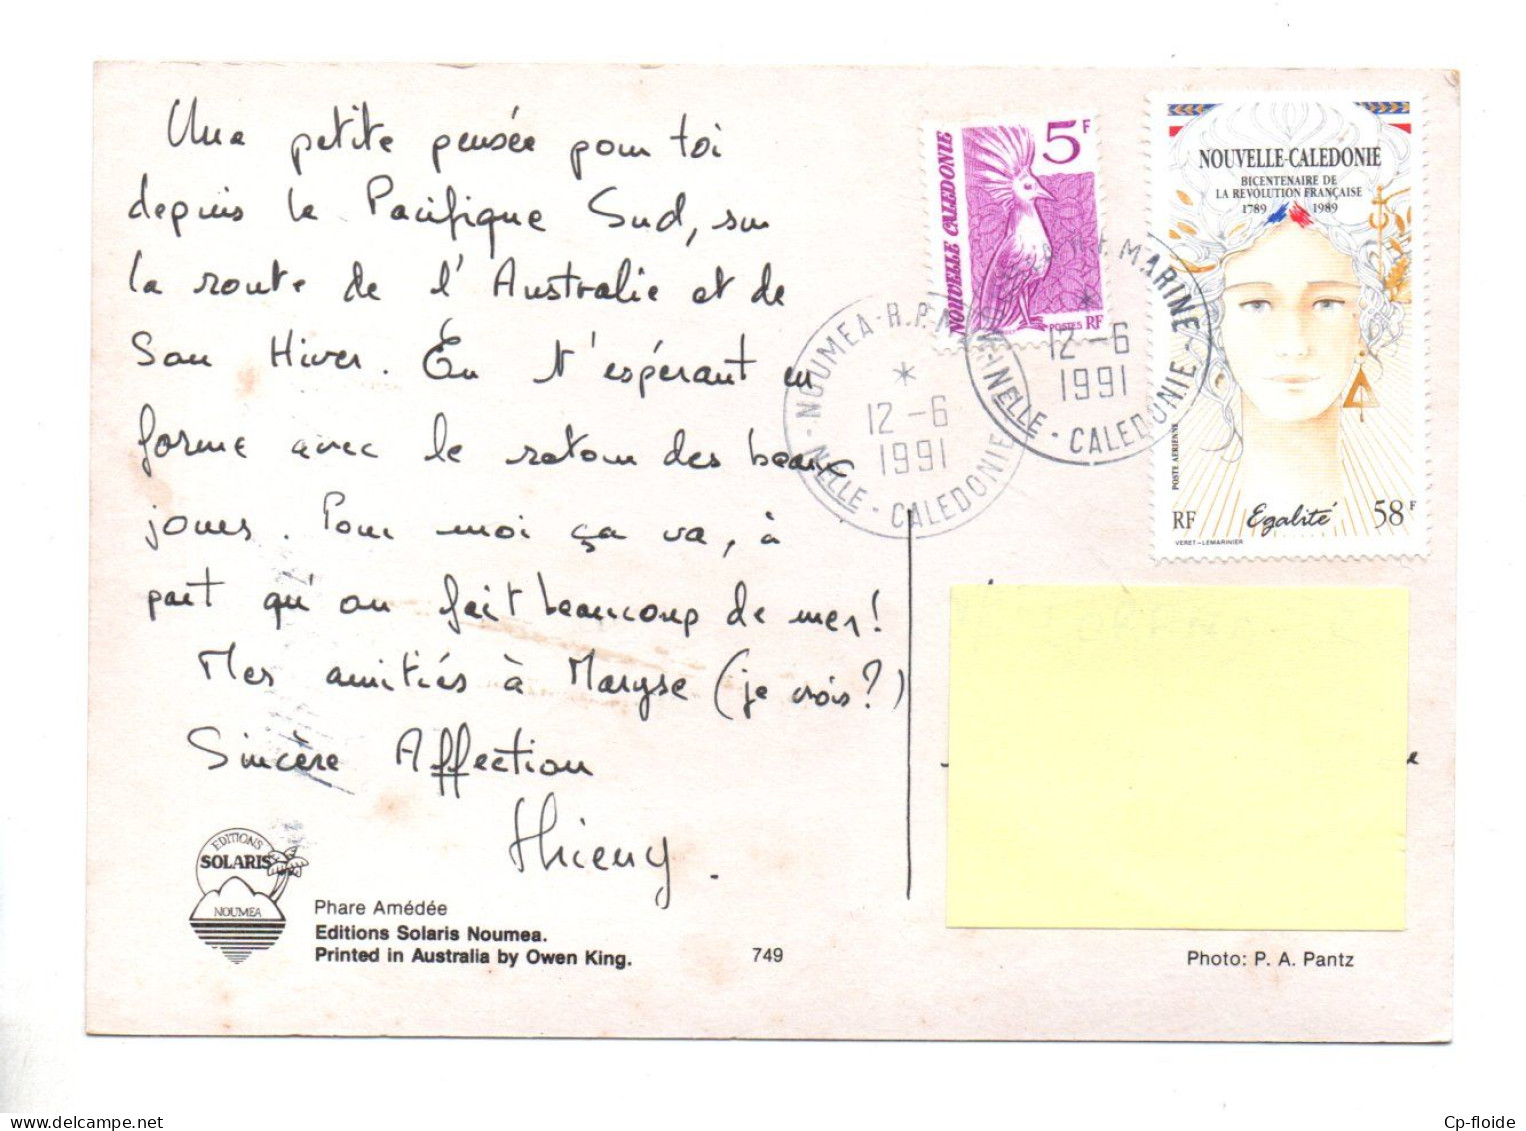 Une petite pensée pour toi
depuis le Pacifique Sud, sur
la route de l'Australie et de
Son Hiver. En t'espérant en
forme avec le retour des beaux
jours. Pour moi ça va, à
part qu'on fait beaucoup de mer!
Mes amitiés à Maryse (je crois?)
Sincère Affection
Thierry.
EDITIONS
SOLARIS
NOUMEA
Phare Amédée
Editions Solaris Noumea.
Printed in Australia by Owen King.
749
Photo: P. A. Pantz
5F
NOUVELLE CALEDONIE
POSTES RF
NOUVELLE-CALEDONIE
BICENTENAIRE DE
LA REVOLUTION FRANÇAISE
1789 1989
POSTE AERIENNE
RF Egalité 58F
VERET-LEMARINIER
NOUMEA-R.P.
12-6
1991
NELLE-CALEDONIE
MARINE
12-6
1991
NELLE-CALEDONIE
Cp-floide